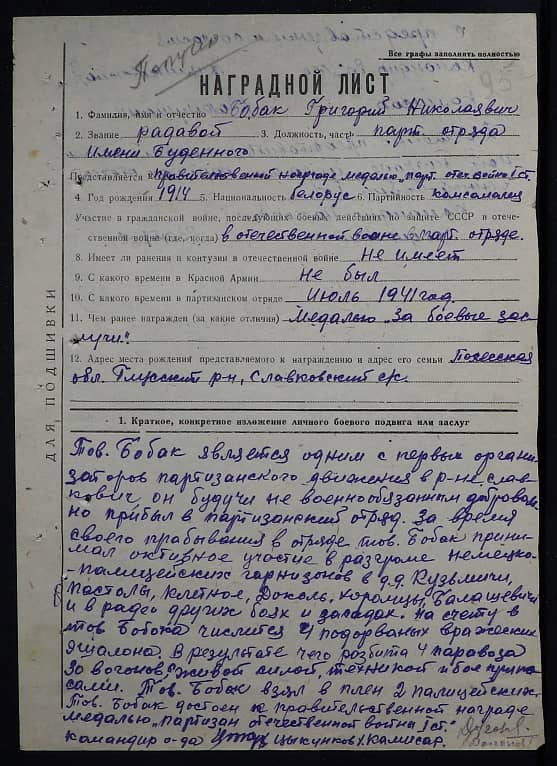 Все графы заполнять полностью
НАГРАДНОЙ ЛИСТ
1. Фамилия, имя и отчество Бобак Григорий Николаявич
2. Звание радавой 3. Должность, часть парт. отряда
Имени Буденного
Представляется к правительственной награде медалью „парт. отеч. войны I ст.
4. Год рождения 1914 5. Национальность белорус 6. Партийность комсомалец
Участие в гражданской войне, последующих боевых действиях по защите СССР и отече-
ственной войне (где, когда) в отечественной воине в парт. отряде.
8. Имеет ли ранения и контузии в отечественной войне Не имеет
9. С какого времени в Красной Армии не был
10. С какого времени в партизанском отряде Июль 1941 год.
11. Чем ранее награжден (за какие отличия) Медалью „За боевые зас
лучи".
12. Адрес места рождения представляемого к награждению и адрес его семьи Полесская
обл. Глуский р-н, Славковский с/с.
ДЛЯ ПОДШИВКИ
1. Краткое, конкретное изложение личного боевого подвига или заслуг
Тов. Бобак является одним с первых органи-
заторов партизанского движения в р-не Слав-
кович он будучи не военнообязанным доброволь-
но прибыл в партизанский отряд. За время
своего прабывания в отряде тов. Бобак прини-
мал октивное участие в разгроме немецко-
-палицейских гарнизонов в д.д. Кузьмичи,
Пастолы, Клетное, Доколь, Хоромцы, Балашевичи
и в радео других боях и засадах. На счету в
тов Бобока числится 4 подорваных вражеских
эшалона. В результате чего розбита 4 паравоза
30 вогонов, с живой силой, техникой и бое припа-
сами. Тов. Бобак взял в плен 2 палицейских.
Тов. Бобак достоен к правительственной награде
медалью „партизан отечественной воины I ст."
командир о-да Цыкунков, Камисар.